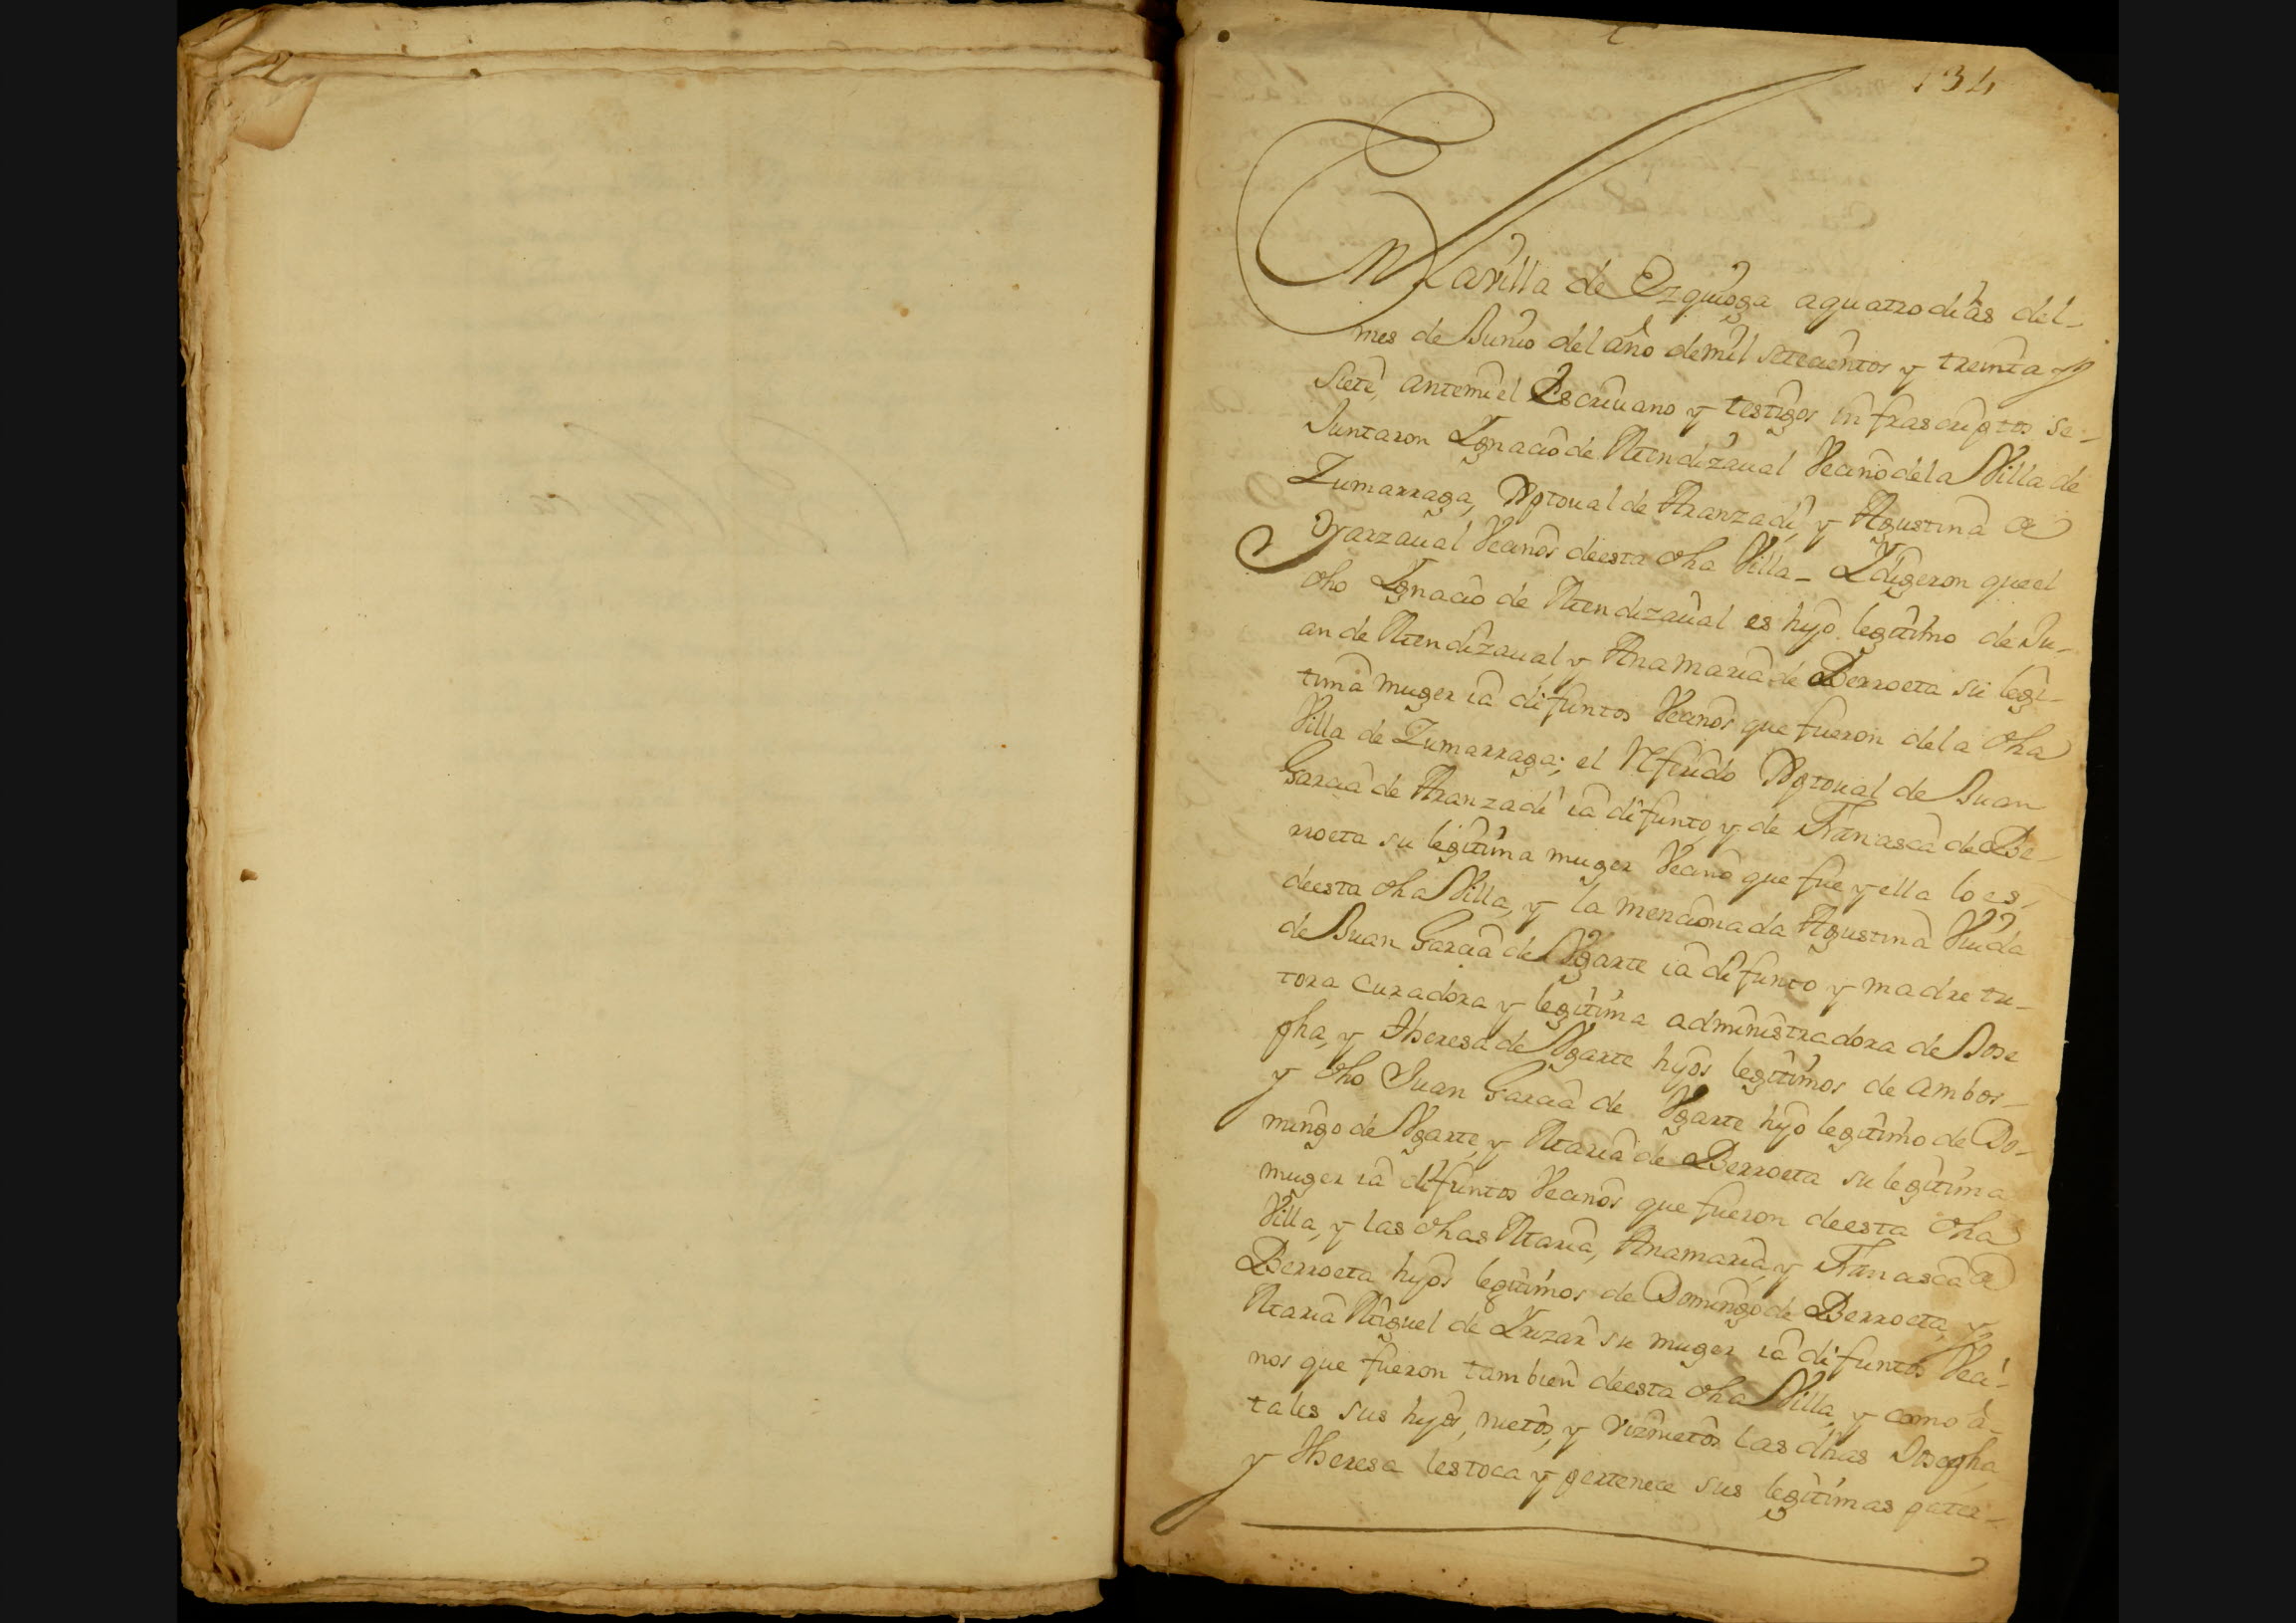 134
En la Villa de Ezquioga a quatro dias del
mes de Junio del año de mil setecientos y treinta y
siete, ante mi el Escriuano y testigos infrascriptos se
Juntaron Ignacio de Mendizaual Vecino de la Villa de
Zumarraga, Xptoual de Aranzadi, y Agustina de
Oyarzaual Vecinos de esta dha Villa - Y digeron que el
dho Ignacio de Mendizaual es hijo legitimo de Ju-
an de Mendizaual y Ana maria de Berroeta su legi-
tima muger ia difuntos Vecinos que fueron de la dha
Villa de Zumarraga; el Referido Xptoual de Juan
Garcia de Aranzadi ia difunto, y de Franasca de Be-
rroeta su legitima muger Vecino que fue y ella lo es
de esta dha Villa, y la mencionada Agustina Viuda
de Juan Garcia de Vgarte ia difunto y madre tu-
tora curadora y legitima administradora de Jose
pha, y Theresa de Vgarte hijos legitimos de ambos
y dho Juan Garcia de Vgarte hijo legitimo de Do-
mingo de Vgarte, y Maria de Berroeta su legitima
muger ia difuntos Vecinos que fueron de esta dha
Villa, y las dhas Maria, Ana maria, y Franasca de
Berroeta hijos legitimos de Domingo de Berroeta, y
Maria Miguel de Yrizar su muger ia difuntos Veci-
nos que fueron tambien de esta dha Villa, y como a-
tales sus hijos, nietos, y viznietos las dhas Josepha
y Theresa les toca y pertenece sus legitimas pater-